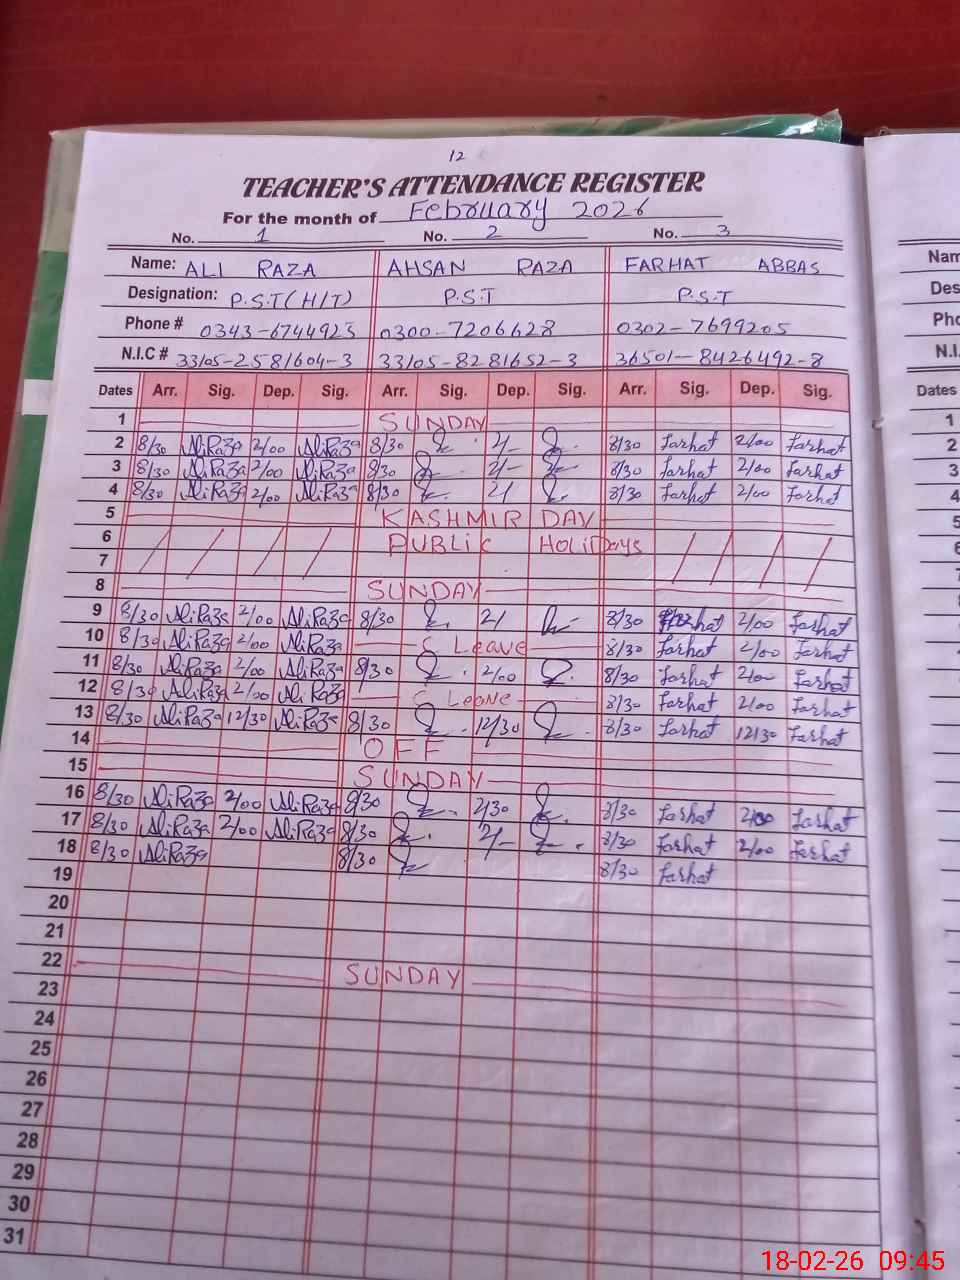 12
TEACHER'S ATTENDANCE REGISTER
For the month of February 2026
No. 1 No. 2 No. 3
Name: ALI RAZA AHSAN RAZA FARHAT ABBAS
Designation: P.S.T(H/T) P.S.T P.S.T
Phone # 0343-6744923 0300-7206628 0302-7699205
N.I.C # 33105-2581604-3 33105-8281652-3 36501-8426492-8
Dates Arr. Sig. Dep. Sig. Arr. Sig. Dep. Sig. Arr. Sig. Dep. Sig.
1 SUNDAY
2 8/30 AliRaza 2/00 AliRaza 8/30 2/- 8/30 Farhat 2/00 Farhat
3 8/30 AliRaza 2/00 AliRaza 8/30 2/- 8/30 Farhat 2/00 Farhat
4 8/30 AliRaza 2/00 AliRaza 8/30 2/ 8/30 Farhat 2/00 Farhat
5 KASHMIR DAY
6 PUBLIC HOLIDAYS
7
8 SUNDAY
9 8/30 AliRaza 2/00 AliRaza 8/30 2/ 8/30 Farhat 2/00 Farhat
10 8/30 AliRaza 2/00 AliRaza C Leave 8/30 Farhat 2/00 Farhat
11 8/30 AliRaza 2/00 AliRaza 8/30 2/00 8/30 Farhat 2/00 Farhat
12 8/30 AliRaza 2/00 AliRaza C Leave 8/30 Farhat 2/00 Farhat
13 8/30 AliRaza 12/30 AliRaza 8/30 12/30 8/30 Farhat 12130 Farhat
14 OFF
15 SUNDAY
16 8/30 AliRaza 2/00 AliRaza 8/30 2/30 8/30 Farhat 2/00 Farhat
17 8/30 AliRaza 2/00 AliRaza 8/30 2/- 8/30 Farhat 2/00 Farhat
18 8/30 AliRaza 8/30 8/30 Farhat
19
20
21
22 SUNDAY
23
24
25
26
27
28
29
30
31
Nam
Des
Pho
N.I.
Dates
1
2
3
4
5
18-02-26 09:45